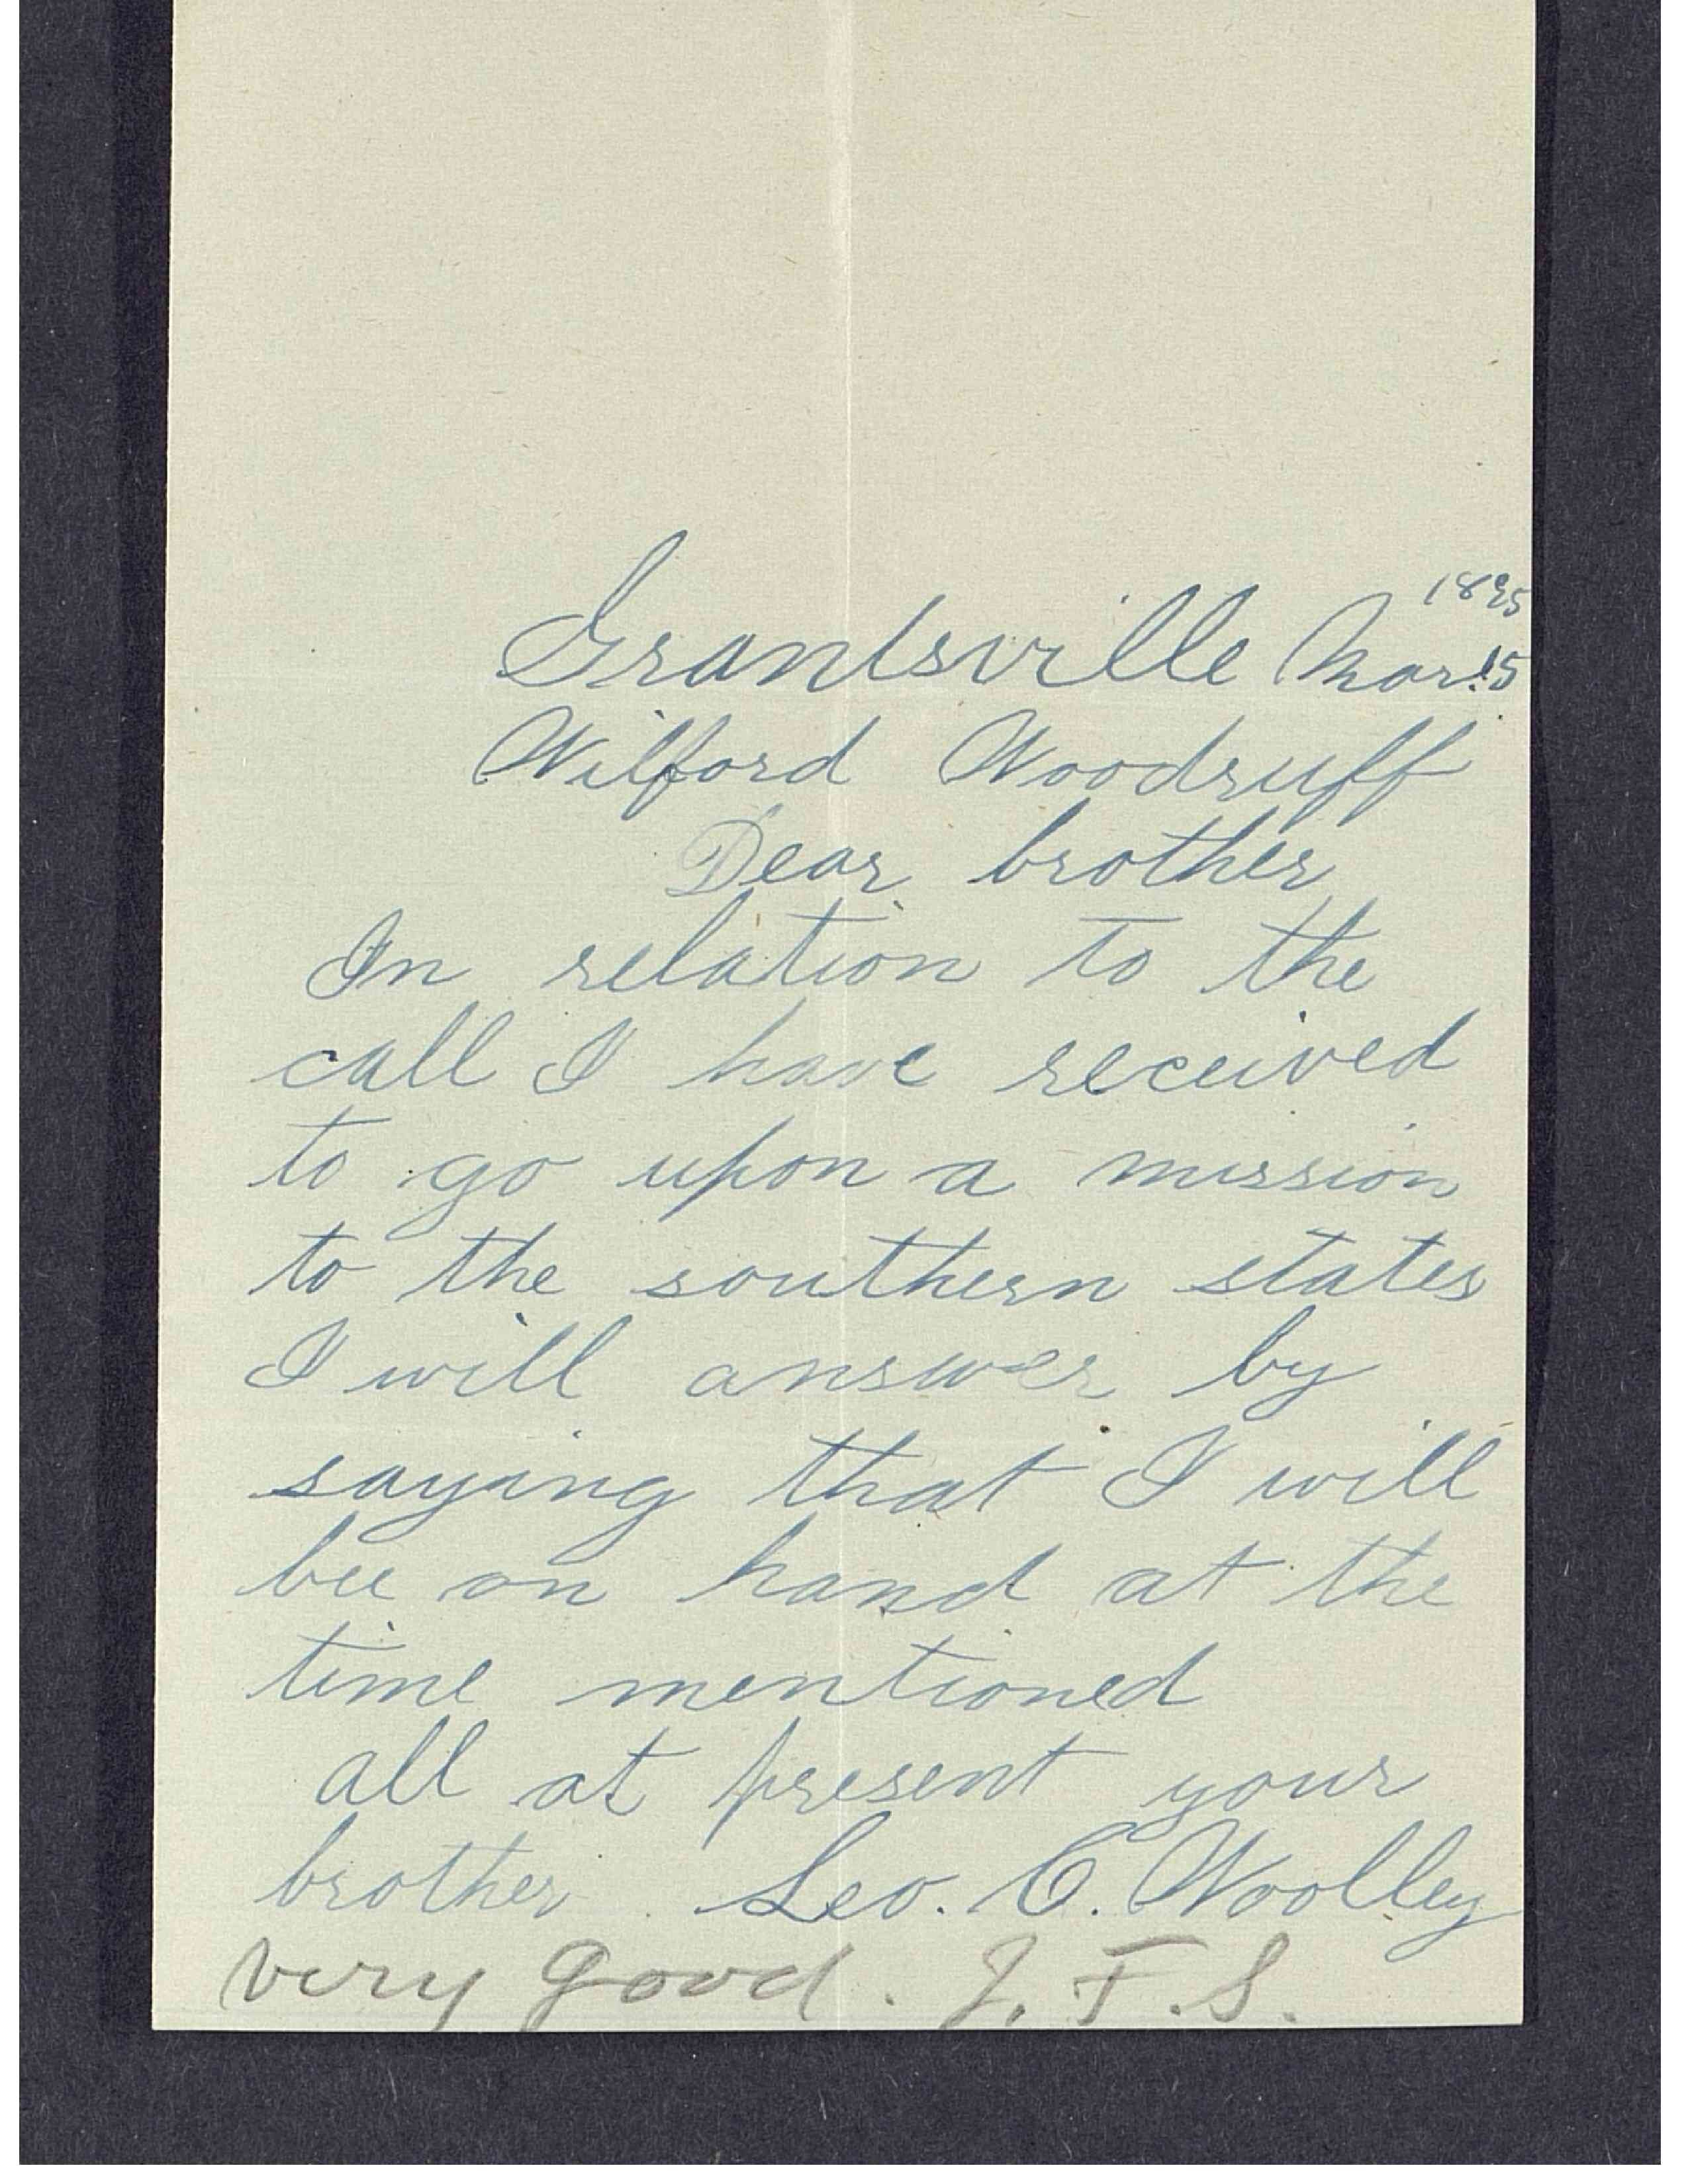 1895
Grantsville Mar. 15
Wilford Woodruff
Dear brother
In relation to the
call I have received
to go upon a mission
to the southern states
I will answer by
saying that I will
bee on hand at the
time mentioned
all at present your
brother Leo. C. Woolley
very good. J. F. S.